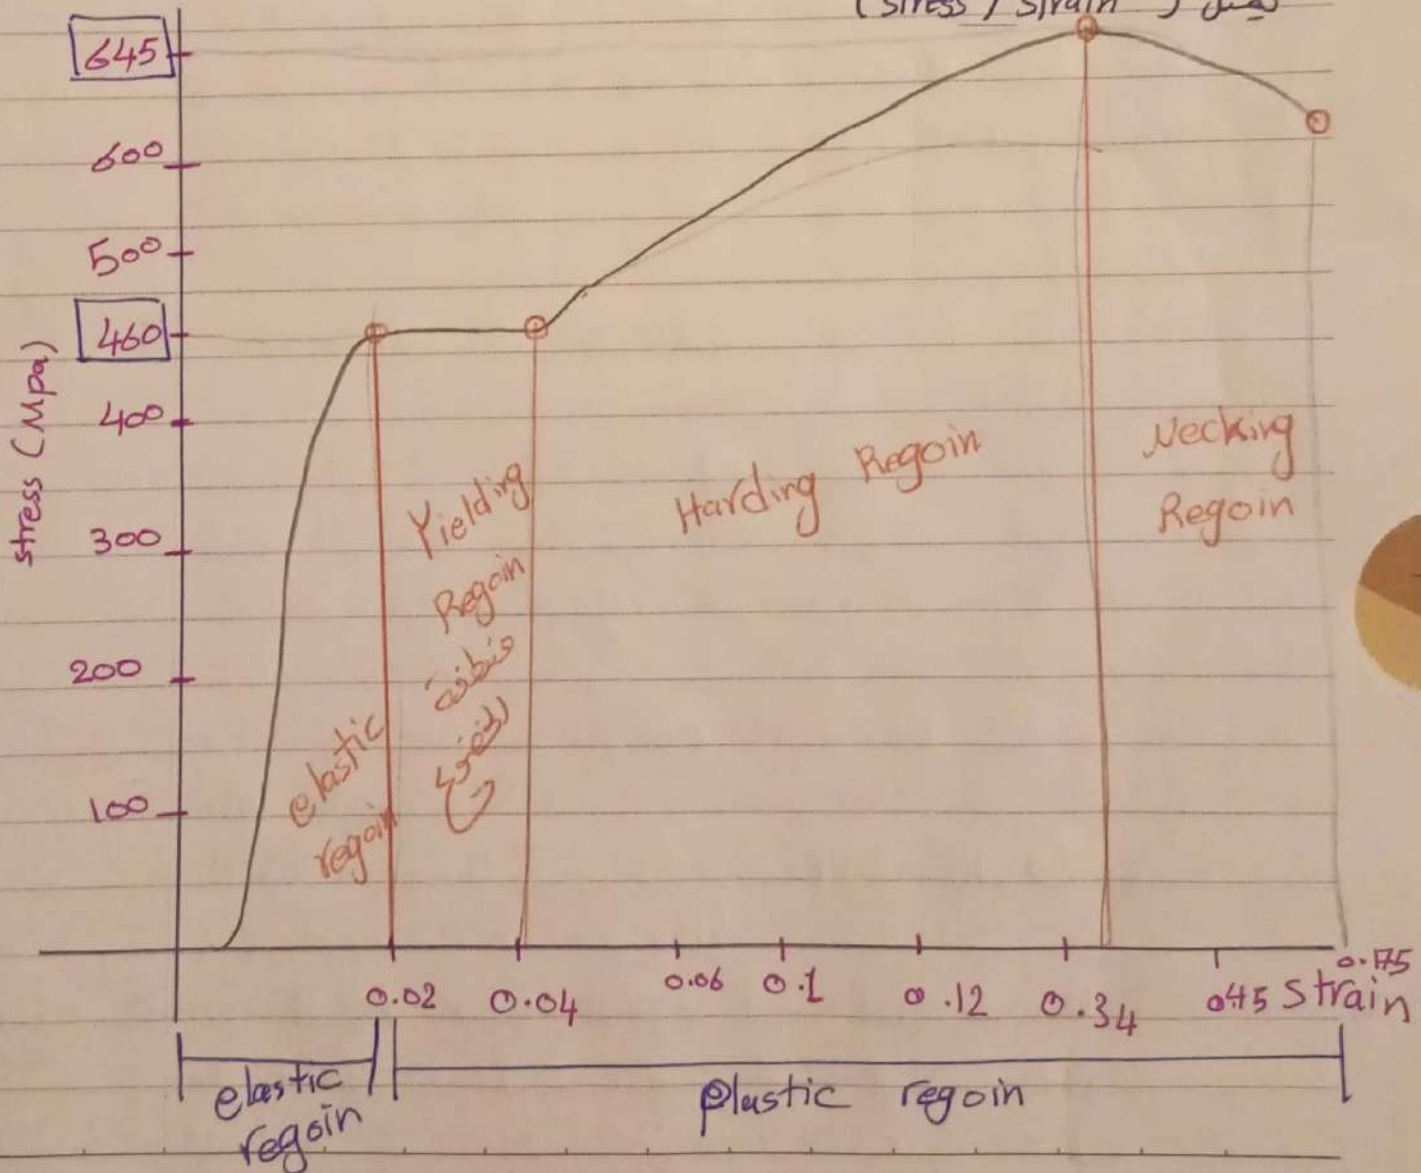 (stress / strain) تمثل
645
600
500
460
400
300
200
100
stress (Mpa)
elastic
regoin
Yielding
Regoin
منطقة
الخضوع
Harding Regoin
Necking
Regoin
0.02 0.04 0.06 0.1 0.12 0.34 045 0.175
Strain
elastic
regoin
plastic regoin